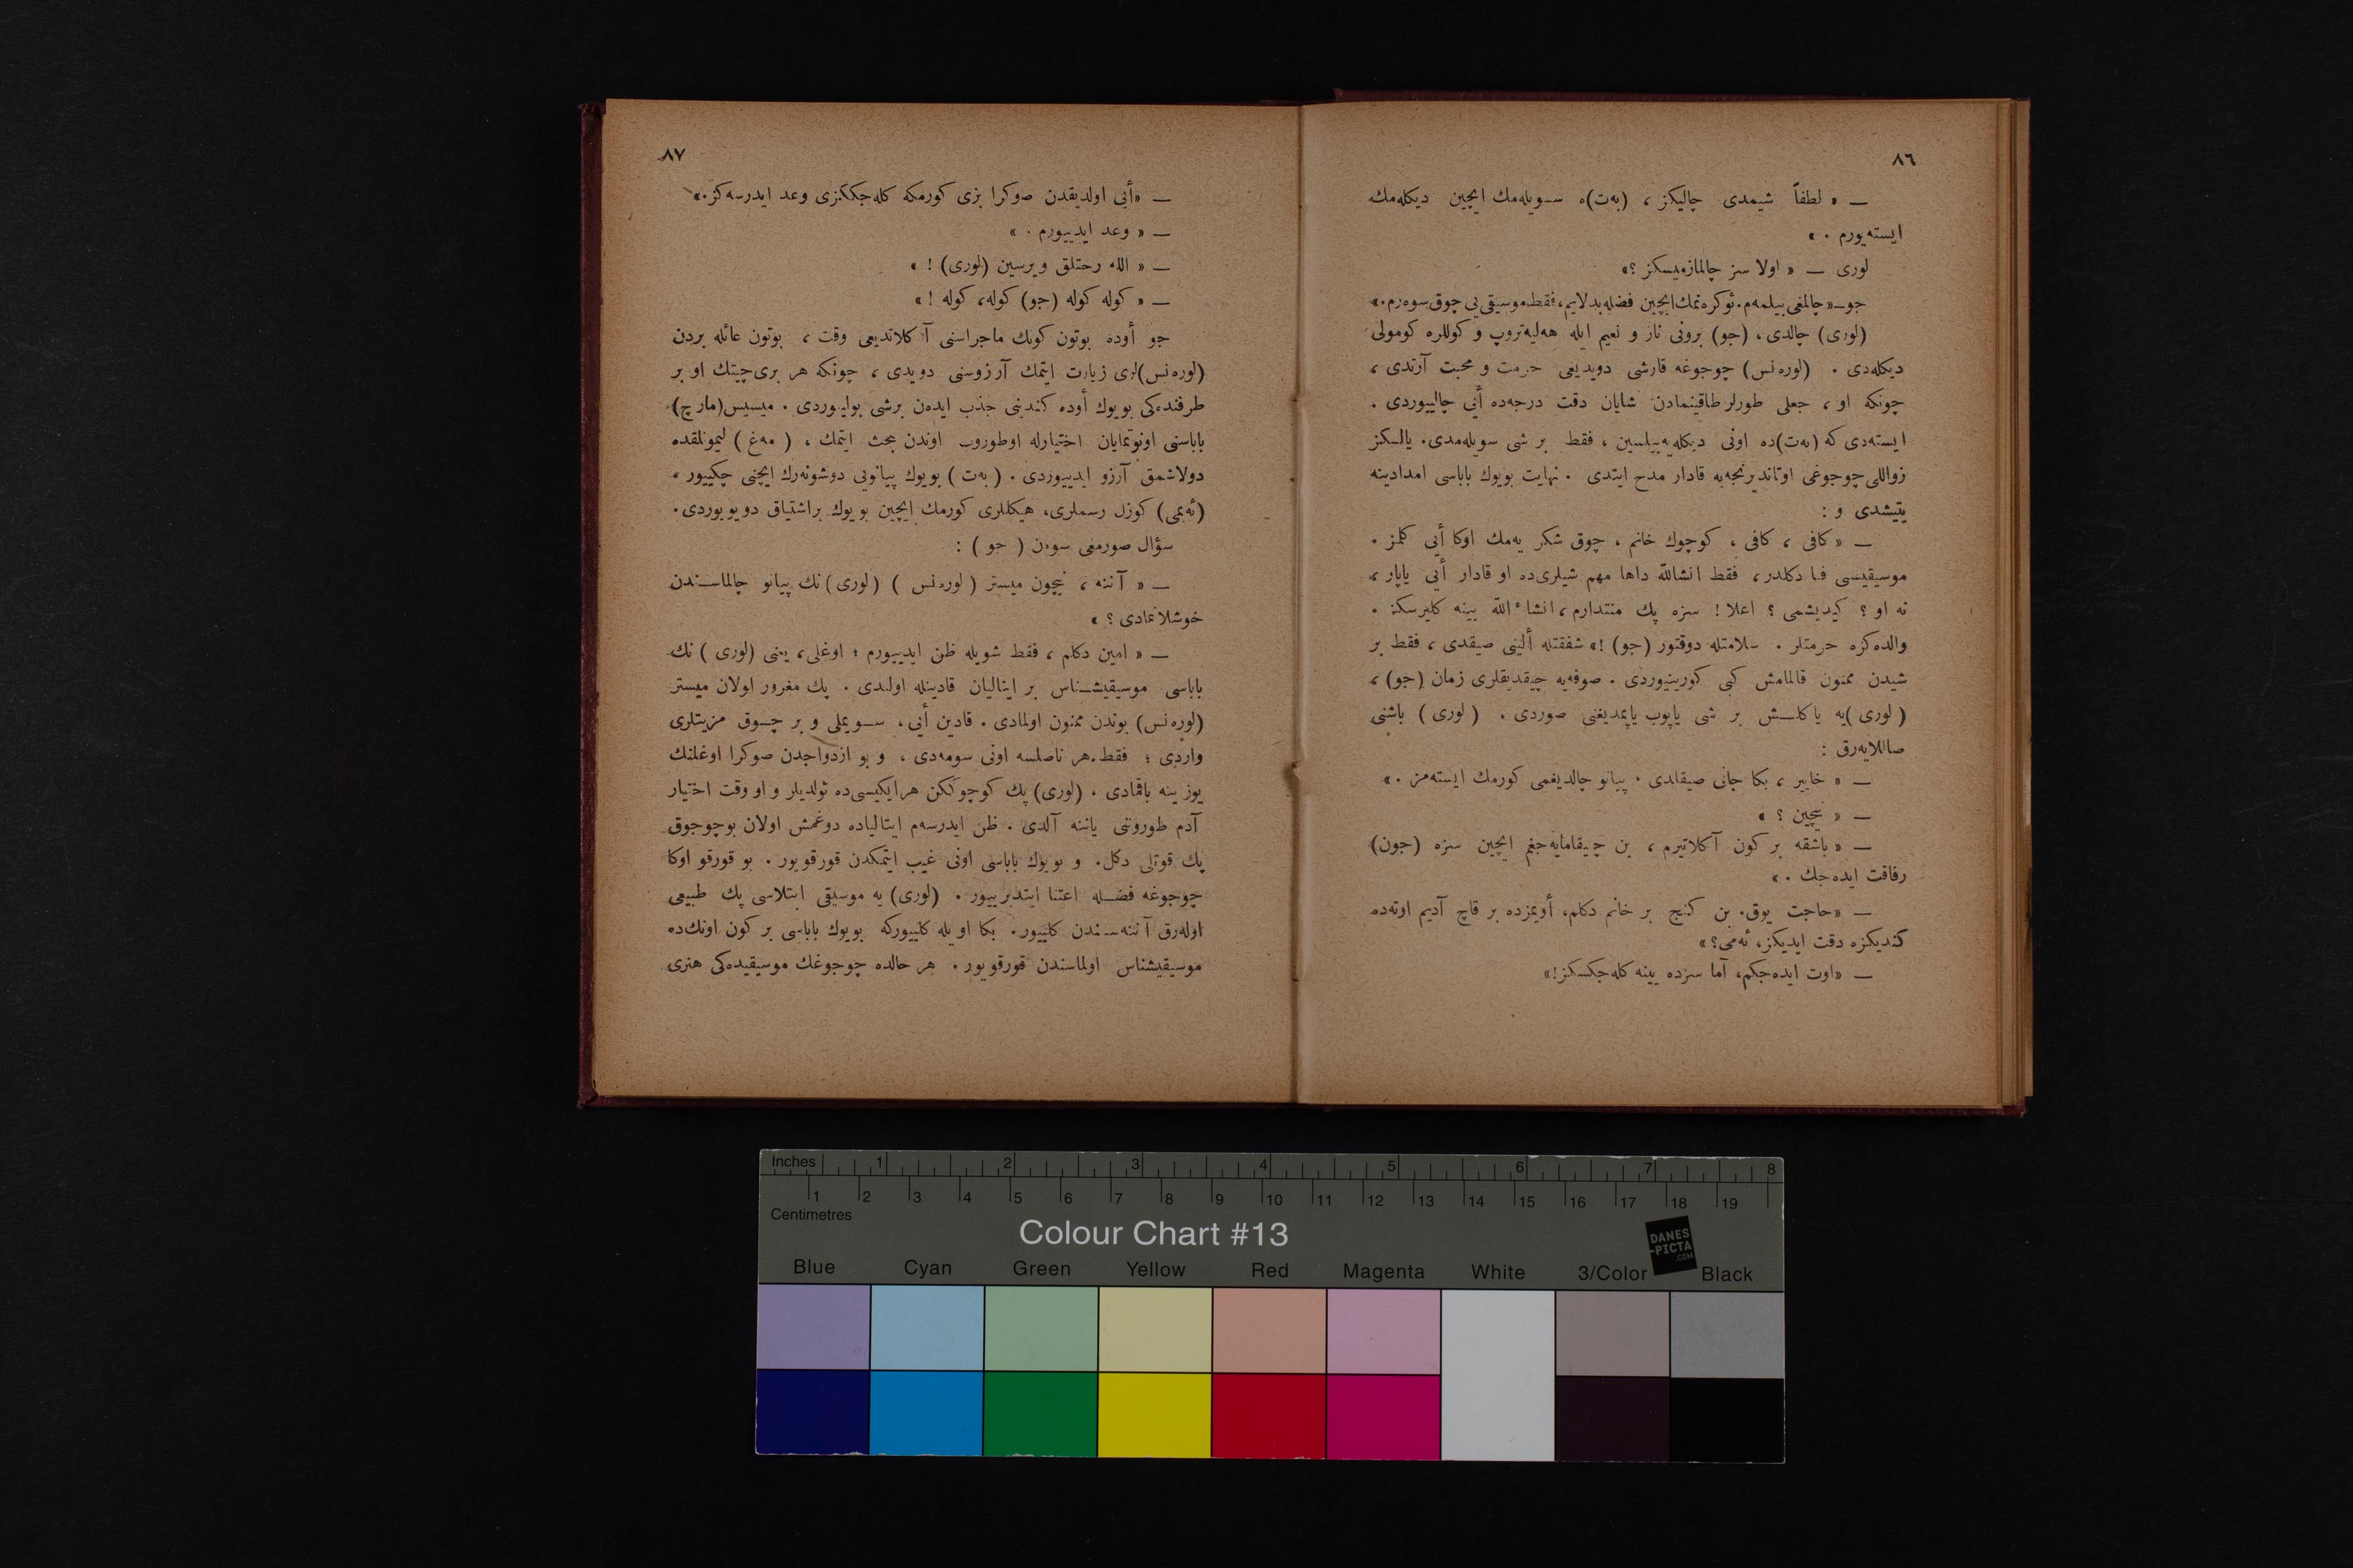 ٨٦
— « لطفاً شیمدی چالیکز ، (بەت)ه سویله‌مك ایچین دیکله‌مك
ایسته‌یورم . »
لوری — « اولا سز چالمازمیسکز ؟»
جو—«چالمغی بیلمه‌م. ئوکره‌نمك ایچین فضله بدلایم، فقط موسیقی‌یی چوق سوه‌رم.»
(لوری) چالدی ، (جو) برونی ناز و نعیم ایله هه‌لیه‌تروپ و کوللره کومولی
دیکله‌دی . (لوره‌نس) چوجوغه قارشی دویدیغی حرمت و محبت آرتدی ،
چونکه او ، جعلی طورلر طاقینمادن شایان دقت درجه‌ده أیی چالییوردی .
ایسته‌دی که (بەت)ده اونی دیکله‌یه‌بیلسین ، فقط بر شی سویله‌مدی. یالکز
زواللی چوجوغی اوتاندیرنجه‌یه قادار مدح ایتدی . نهایت بویوك باباسی امدادینه
یتیشدی و :
— « کافی ، کافی ، کوچوك خانم ، چوق شکر یه‌مك اوکا أیی کلمز .
موسیقیسی فنا دکلدر ، فقط انشاللّه داها مهم شیلری‌ده او قادار أیی یاپار ،
نه او ؟ کیدیشمی ؟ اعلا ! سزه پك منتدارم ، انشاءاللّه یینه کلیرسکز .
والده‌کزه حرمتلر . سلامتله دوقتور (جو) !» شفقتله ألینی صیقدی ، فقط بر
شیدن ممنون قالمامش کبی کورینیوردی . صوفه‌یه چیقدیقلری زمان (جو) ،
(لوری)یه یاکلش بر شی یاپوب یاپمدیغنی صوردی . (لوری) باشنی
صاللایه‌رق :
— « خایر ، بکا جانی صیقلدی . پیانو چالدیغمی کورمك ایسته‌مز . »
— « نیچین ؟ »
— « باشقه بر کون آکلاتیرم ، بن چیقامایه‌جغم ایچین سزه (جون)
رفاقت ایده‌جك . »
— «حاجت یوق. بن کنج بر خانم دکلم، أویمزده بر قاچ آدیم اوته‌ده
کندیکزه دقت ایدیکز، ئه‌می؟ »
— «اوت ایده‌جکم، آما سزده یینه کله‌جکسکز!»
٨٧
— «أیی اولدیقدن صوکرا بزی کورمکه کله‌جککزی وعد ایدرسه‌کز.»
— « وعد ایدییورم . »
— « اللّه رحتلق ویرسین (لوری) ! »
— « کوله کوله (جو) کوله، کوله ! »
جو أوده بوتون کونك ماجراسنی آکلاتدیغی وقت ، بوتون عائله بردن
(لوره‌نس)لری زیارت ایتمك آرزوسنی دویدی ، چونکه هر بری چیتك او بر
طرفنده‌کی بویوك أوده کندینی جذب ایدەن برشی بولیوردی . میسیس(مارچ)
باباسنی اونوتمایان اختیارله اوطوروب اوندن بحث ایتمك ، (مه‌غ) لیمونلقده
دولاشمق آرزو ایدییوردی . (بەت) بویوك پیانویی دوشونه‌رك ایچنی چکییور ،
(ئه‌می) کوزل رسملری، هیکللری کورمك ایچین بویوك براشتیاق دویویوردی.
سؤال صورمغی سوەن (جو) :
— « آننه ، نیچون میستر (لوره‌نس) (لوری)نك پیانو چالماسندن
خوشلانمادی ؟ »
— « امین دکلم ، فقط شویله ظن ایدییورم ؛ اوغلی، یعنی (لوری) نك
باباسی موسیقیشناس بر ایتالیان قادینله اولندی . پك مغرور اولان میستر
(لوره‌نس) بوندن ممنون اولمادی . قادین أیی ، سویملی و بر چوق مزیتلری
واردی ؛ فقط هر ناصلسه اونی سومه‌دی ، و بو ازدواجدن صوکرا اوغلنك
یوزینه باقمادی . (لوری) پك کوچوککن هرایکیسی‌ده ئولدیلر و او وقت اختیار
آدم طوروننی یاننه آلدی . ظن ایدرسه‌م ایتالیاده دوغمش اولان بوچوجوق
پك قوتلی دکل. و بویوك باباسی اونی غیب ایتمکدن قورقویور . بو قورقو اوکا
چوجوغه فضله اعتنا ایتدیرییور . (لوری) یه موسیقی ابتلاسی پك طبیعی
اوله‌رق آننه‌سندن کلییور. بکا اویله کلییورکه بویوك باباسی بر کون اونك‌ده
موسیقیشناس اولماسندن قورقویور . هر حالده چوجوغك موسیقیده‌کی هنری
Inches 1 2 3 4 5 6 7 8
1 2 3 4 5 6 7 8 9 10 11 12 13 14 15 16 17 18 19
Centimetres
Colour Chart #13
DANES
-PICTA
.COM
Blue Cyan Green Yellow Red Magenta White 3/Color Black